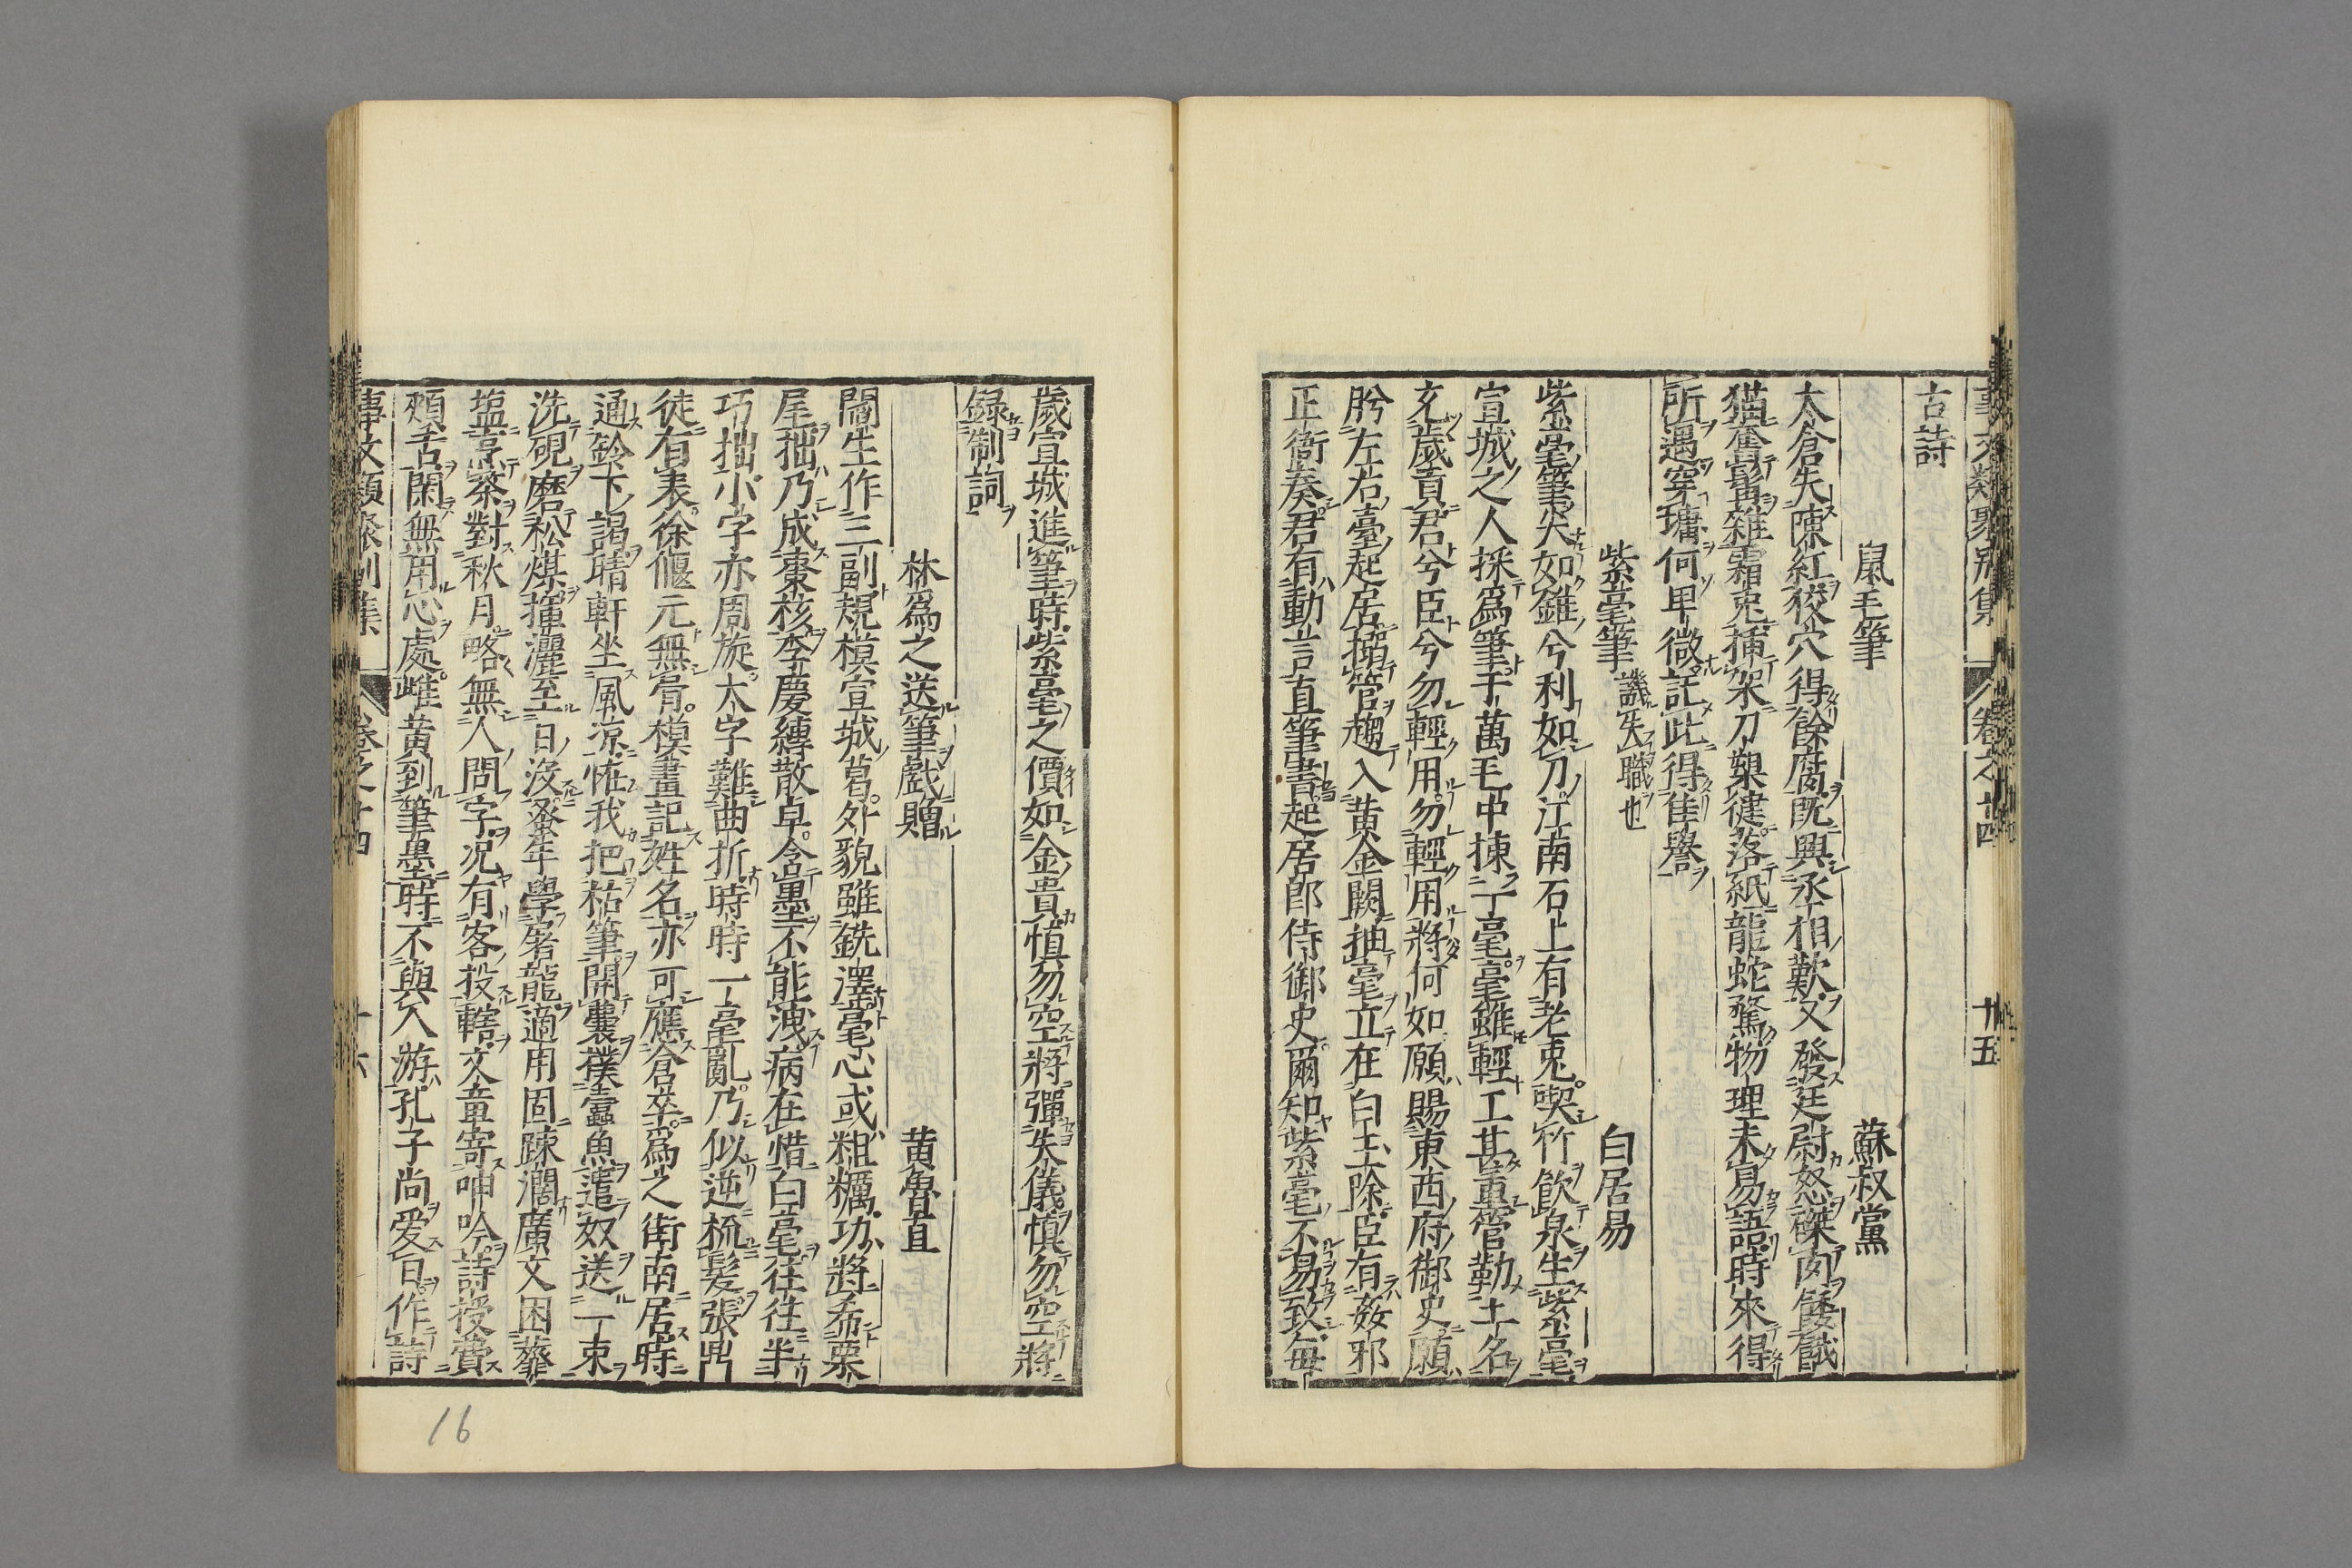 事文類聚別集 卷之十四 十五
古詩
鼠毛筆 蘇叔黨
太倉失陳紅狡穴得餘腐既興丞相歎又發廷尉怒磔肉餧餓
猫奮髯雜霜兎插架刀槊健落紙龍蛇騖物理未易語時來得
所遇穿墉何卑微託此得佳譽
紫毫筆 譏失職也 白居易
紫毫筆尖如錐兮利如刀江南石上有老兎喫竹飲泉生紫毫
宣城之人採爲筆千萬毛中揀一毫毫雖輕工甚重管勒工名
充歲貢君兮臣兮勿輕用勿輕用將何如願賜東西府御史願
肹左右臺起居搦管趨入黄金闕抽毫立在白玉除臣有姦邪
正衙奏君有動言直筆書起居郎侍御史爾知紫毫不易致每
歲宣城進筆時紫毫之價如金貴慎勿空將彈失儀慎勿空將
録制詞
林爲之送筆戲贈 黄魯直
閻生作三副規模宣城葛外貌雖銑澤毫心或粗糲功將希栗
尾拙乃成棗核李慶縛散卓含墨不能洩病在惜白毫往往半
巧拙小字亦周旋大字難曲折時時一毫亂乃似逆梳髮張鼎
徒有表徐偃元無骨模畫記姓名亦可應倉卒爲之街南居時
通鈴下謁晴軒坐風凉恠我把枯筆開囊撲蠧魚遣奴送一束
洗硯磨松煤揮灑至日沒蚤年學屠龍適用固踈濶廣文困虀
塩烹茶對秋月略無人問字况有客投轄文章寄呻吟講授費
頰舌閑無用心處雌黄到筆墨時不與人游孔子尚爱日作詩
事文類聚別集 卷之十四 十六
16